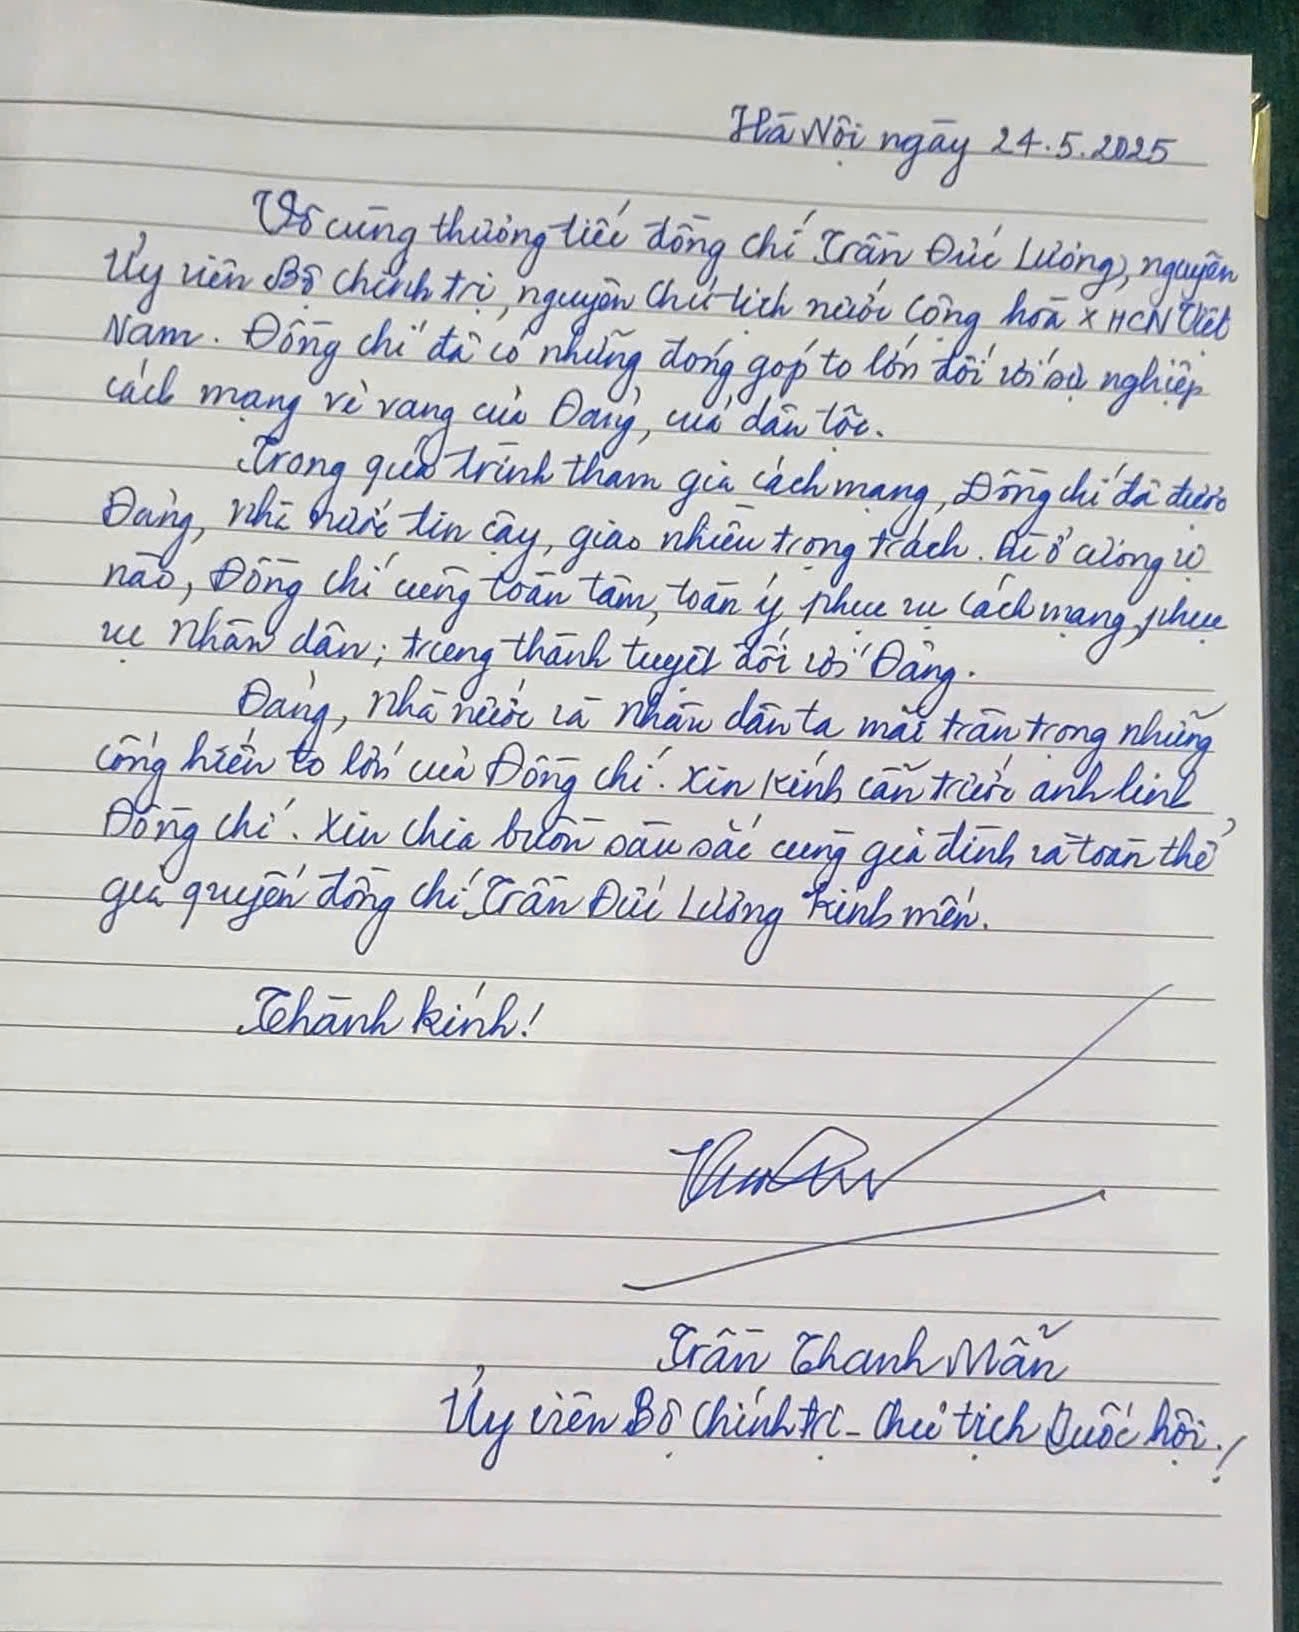 Hà Nội ngày 24.5.2025
Vô cùng thương tiếc đồng chí Trần Đức Lương, nguyên
Ủy viên Bộ chính trị, nguyên Chủ tịch nước Cộng hòa XHCN Việt
Nam. Đồng chí đã có những đóng góp to lớn đối với sự nghiệp
cách mạng vẻ vang của Đảng, của dân tộc.
Trong quá trình tham gia cách mạng, Đồng chí đã được
Đảng, Nhà nước tin cậy, giao nhiều trọng trách. Dù ở cương vị
nào, Đồng chí cũng toàn tâm, toàn ý phục vụ cách mạng, phục
vụ Nhân dân; trung thành tuyệt đối với Đảng.
Đảng, Nhà nước và Nhân dân ta mãi trân trọng những
cống hiến to lớn của Đồng chí. Xin kính cẩn trước anh linh
Đồng chí. Xin chia buồn sâu sắc cùng gia đình và toàn thể
gia quyến đồng chí Trần Đức Lương kính mến.
Thành kính!
Trần Thanh Mẫn
Ủy viên Bộ Chính trị - Chủ tịch Quốc hội.!